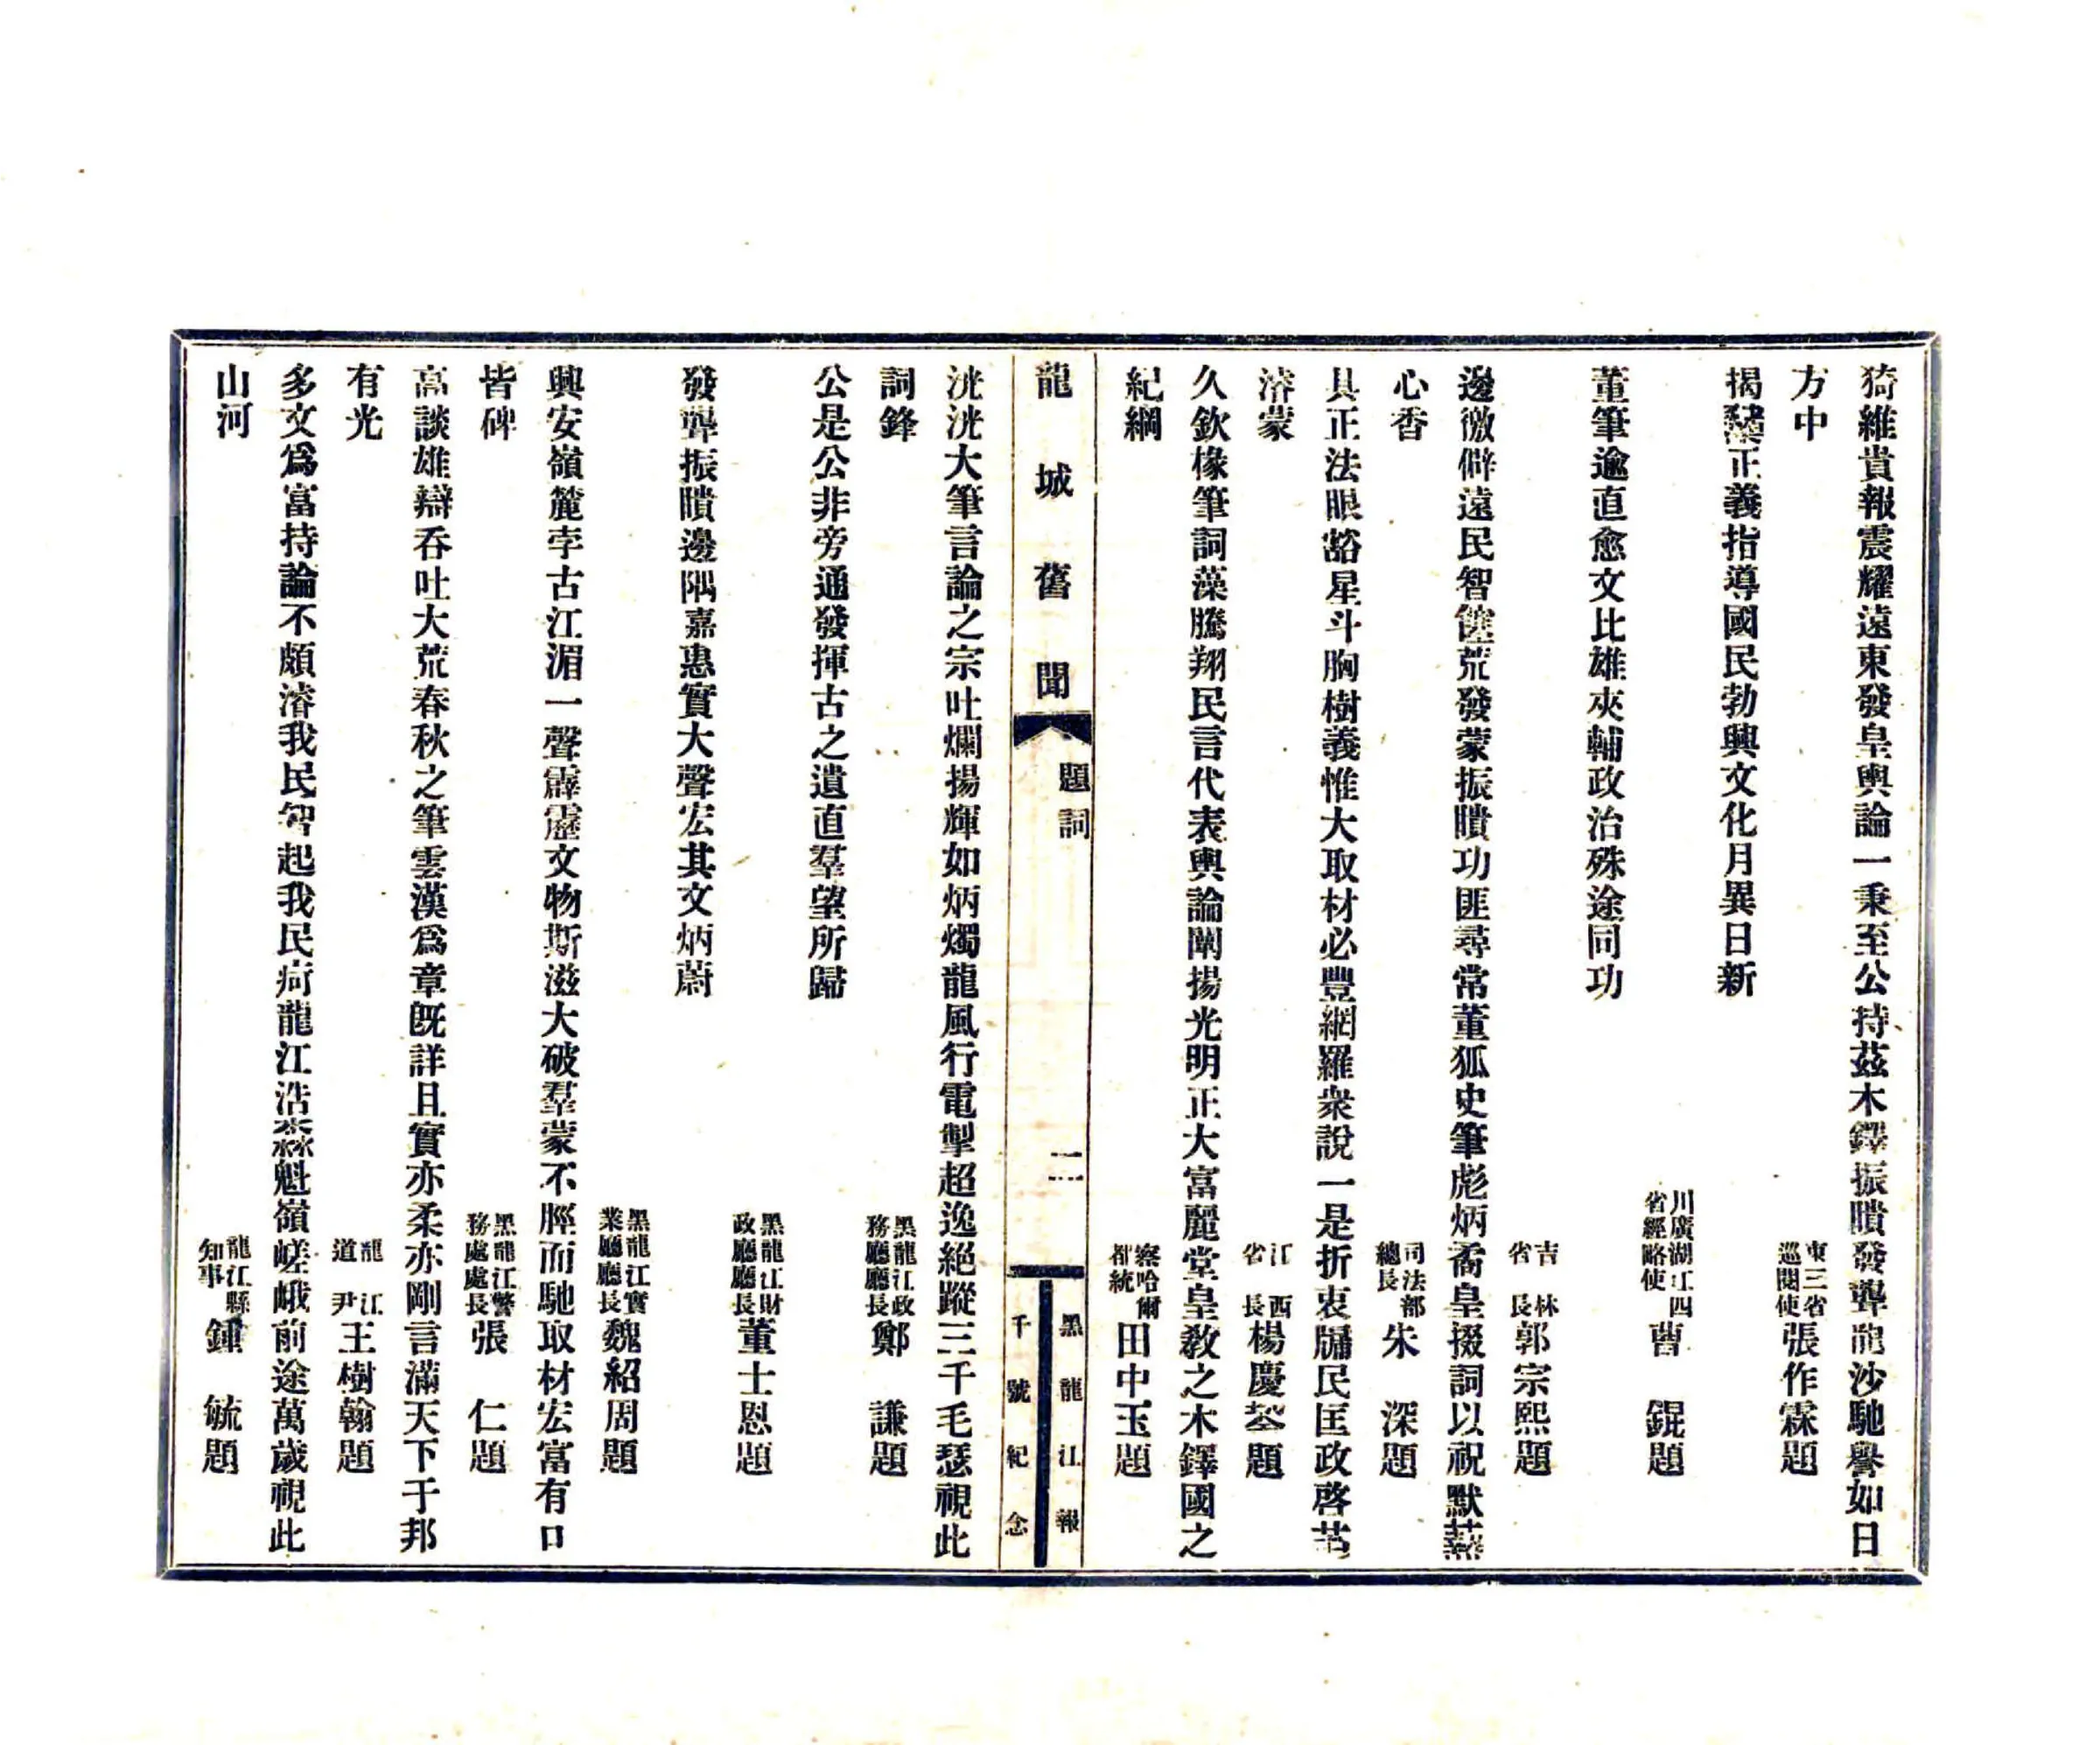 猗維貴報震耀遠東發皇輿論一秉至公持茲木鐸振聵發聾龍沙馳譽如日
方中
東三省巡閱使張作霖題
揭櫫正義指導國民勃興文化月異日新
川廣湖江四省經略使曹　錕題
董筆逾直愈文比雄夾輔政治殊途同功
吉林省長郭宗熙題
邊徼僻遠民智僿荒發蒙振聵功匪尋常董狐史筆彪炳矞皇掇詞以祝默爇
心香
司法部總長朱　深題
具正法眼豁星斗胸樹義惟大取材必豐網羅衆說一是折衷牗民匡政啓
濬蒙
江西省長楊慶鋆題
久欽椽筆詞藻騰翔民言代表輿論闡揚光明正大富麗堂皇敎之木鐸國之
紀綱
察哈爾都統田中玉題
龍城舊聞
題詞
二
黑龍江報
千號紀念
洸洸大筆言論之宗吐爛揚輝如炳燭龍風行電掣超逸絕蹤三千毛瑟視此
詞鋒
黑龍江政務廳廳長鄭　謙題
公是公非旁通發揮古之遺直羣望所歸
黑龍江財政廳廳長董士恩題
發聾振聵邊隅嘉惠實大聲宏其文炳蔚
黑龍江實業廳廳長魏紹周題
興安嶺麓孛古江湄一聲霹靂文物斯滋大破羣蒙不脛而馳取材宏富有口
皆碑
黑龍江警務處處長張　仁題
高談雄辯吞吐大荒春秋之筆雲漢爲章旣詳且實亦柔亦剛言滿天下于邦
有光
龍江道尹王樹翰題
多文爲富持論不頗濬我民智起我民疴龍江浩淼魁嶺嵯峨前途萬歲視此
山河
龍江縣知事鍾　毓題